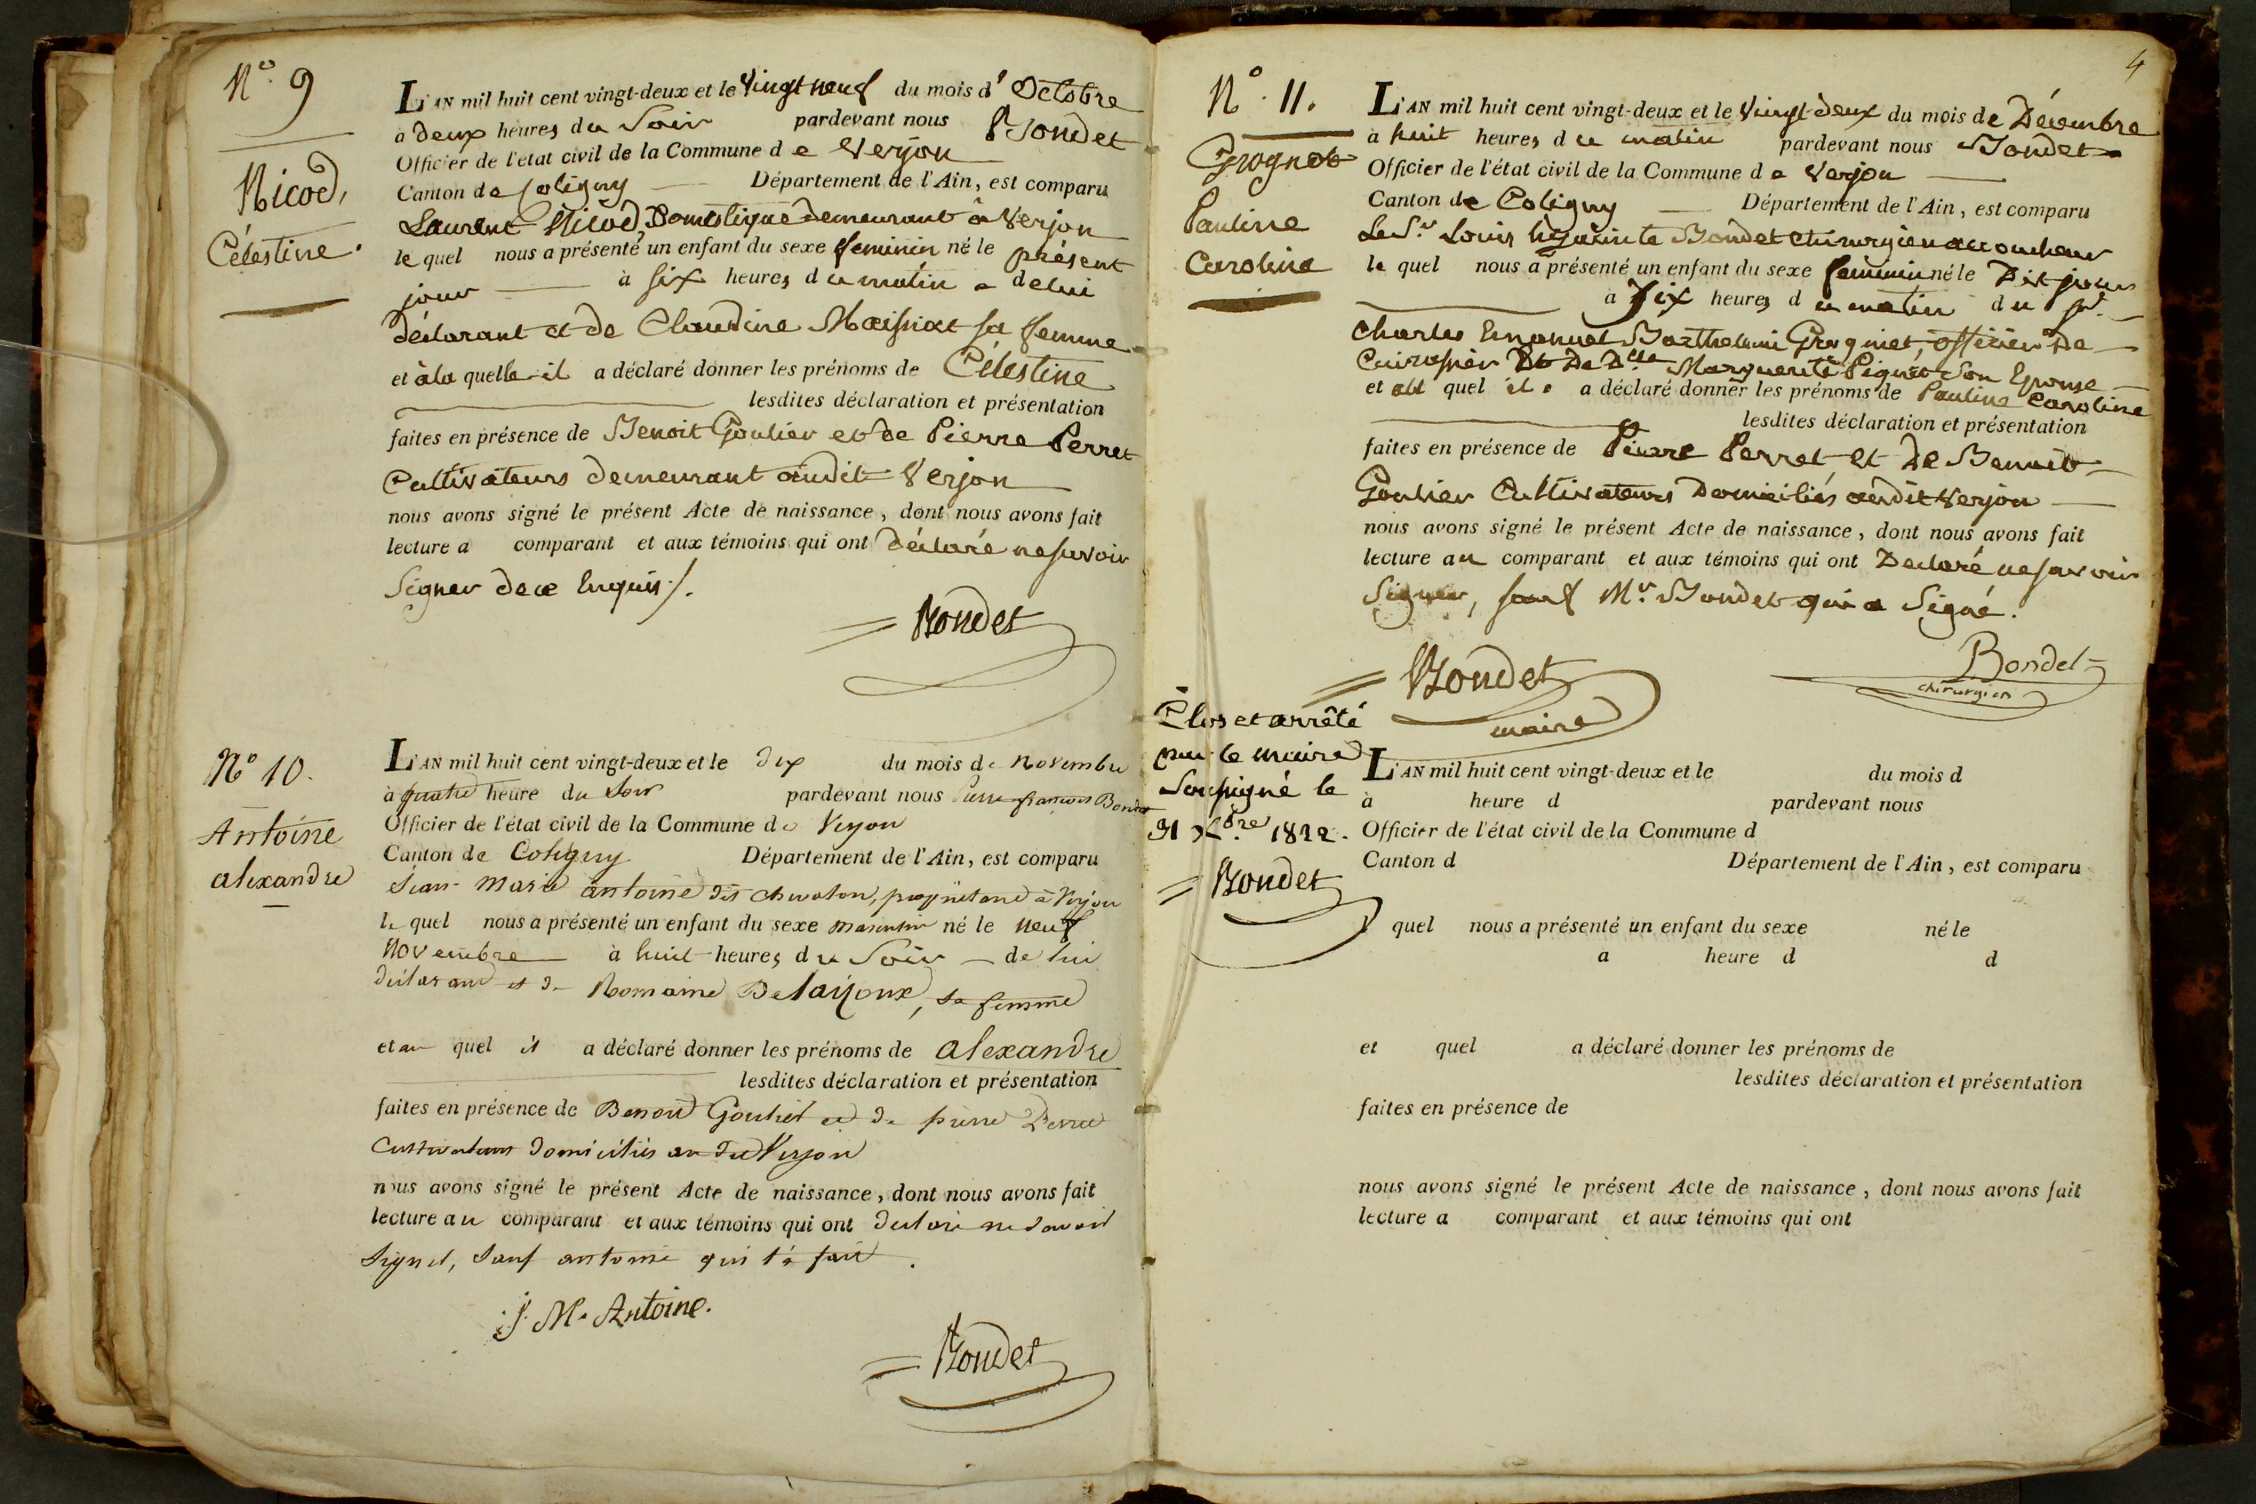 N.° 9
Nicod,
Célestine.
L'AN mil huit cent vingt-deux et le Vingt neuf du mois d' Octobre
à deux heures du Soir pardevant nous Bondet
Officier de l'état civil de la Commune de Verjon
Canton de Coligny Département de l'Ain, est comparu
Laurent Nicod, Domestique demeurant à Verjon
lequel nous a présenté un enfant du sexe feminin né le présent
jour à six heures du matin de lui
déclarant et de Claudine sa femme
et à la quelle il a déclaré donner les prénoms de Célestine
lesdites déclaration et présentation
faites en présence de Benoit Goulier et de Pierre Perret
Cultivateurs demeurant audit Verjon
nous avons signé le présent Acte de naissance, dont nous avons fait
lecture a comparant et aux témoins qui ont déclaré ne savoir
Signer de ce Enquis /.
Bondet
N° 10.
Antoine
alexandre
L'AN mil huit cent vingt-deux et le dix du mois de Novembre
à quatre heure du Soir pardevant nous Pierre françois Bondet
Officier de l'état civil de la Commune de Verjon
Canton de Coligny Département de l'Ain, est comparu
Jean-Marie antoine dit propriétaire à Verjon
lequel nous a présenté un enfant du sexe masculin né le neuf
Novembre à huit heures du Soir de lui
déclarant et de Romaine Delajoux, sa femme
et au quel il a déclaré donner les prénoms de alexandre
lesdites déclaration et présentation
faites en présence de Benoit Goulier et de pierre Perret
Cultivateurs domiciliés au dit Verjon
nous avons signé le présent Acte de naissance, dont nous avons fait
lecture au comparant et aux témoins qui ont déclaré ne savoir
Signer, Sauf antoine qui l'a fait.
J. M. Antoine.
Bondet
4
N.° 11.
Grognet
Pauline
Caroline
L'AN mil huit cent vingt-deux et le Vingt-deux du mois de Décembre
à huit heures du matin pardevant nous Bondet
Officier de l'état civil de la Commune de Verjon
Canton de Coligny Département de l'Ain, est comparu
Le S.r Louis hyacinte Bondet chirurgien accoucheur
lequel nous a présenté un enfant du sexe feminin né le Dit jour
à Six heures du matin du S.r
Charles Emanuel Barthelemi Grognet, officier de
Cuirassier Et De D.lle Marguerite Piquet Son Epouse
et au quel il a déclaré donner les prénoms de Pauline Caroline
lesdites déclaration et présentation
faites en présence de Pierre Perret et De Benoit
Goulier Cultivateurs Domiciliés audit Verjon
nous avons signé le présent Acte de naissance, dont nous avons fait
lecture au comparant et aux témoins qui ont Declaré ne savoir
Signer, sauf M.r Bondet qui a Signé.
Bondet
maire
Bondet
chirurgien
Clos et arrêté
par le maire
Soussigné le
31 X.bre 1822.
Bondet
L'AN mil huit cent vingt-deux et le du mois d
à heure d pardevant nous
Officier de l'état civil de la Commune d
Canton d Département de l'Ain, est comparu
l quel nous a présenté un enfant du sexe né le
a heure d d
et quel a déclaré donner les prénoms de
lesdites déclaration et présentation
faites en présence de
nous avons signé le présent Acte de naissance, dont nous avons fait
lecture a comparant et aux témoins qui ont